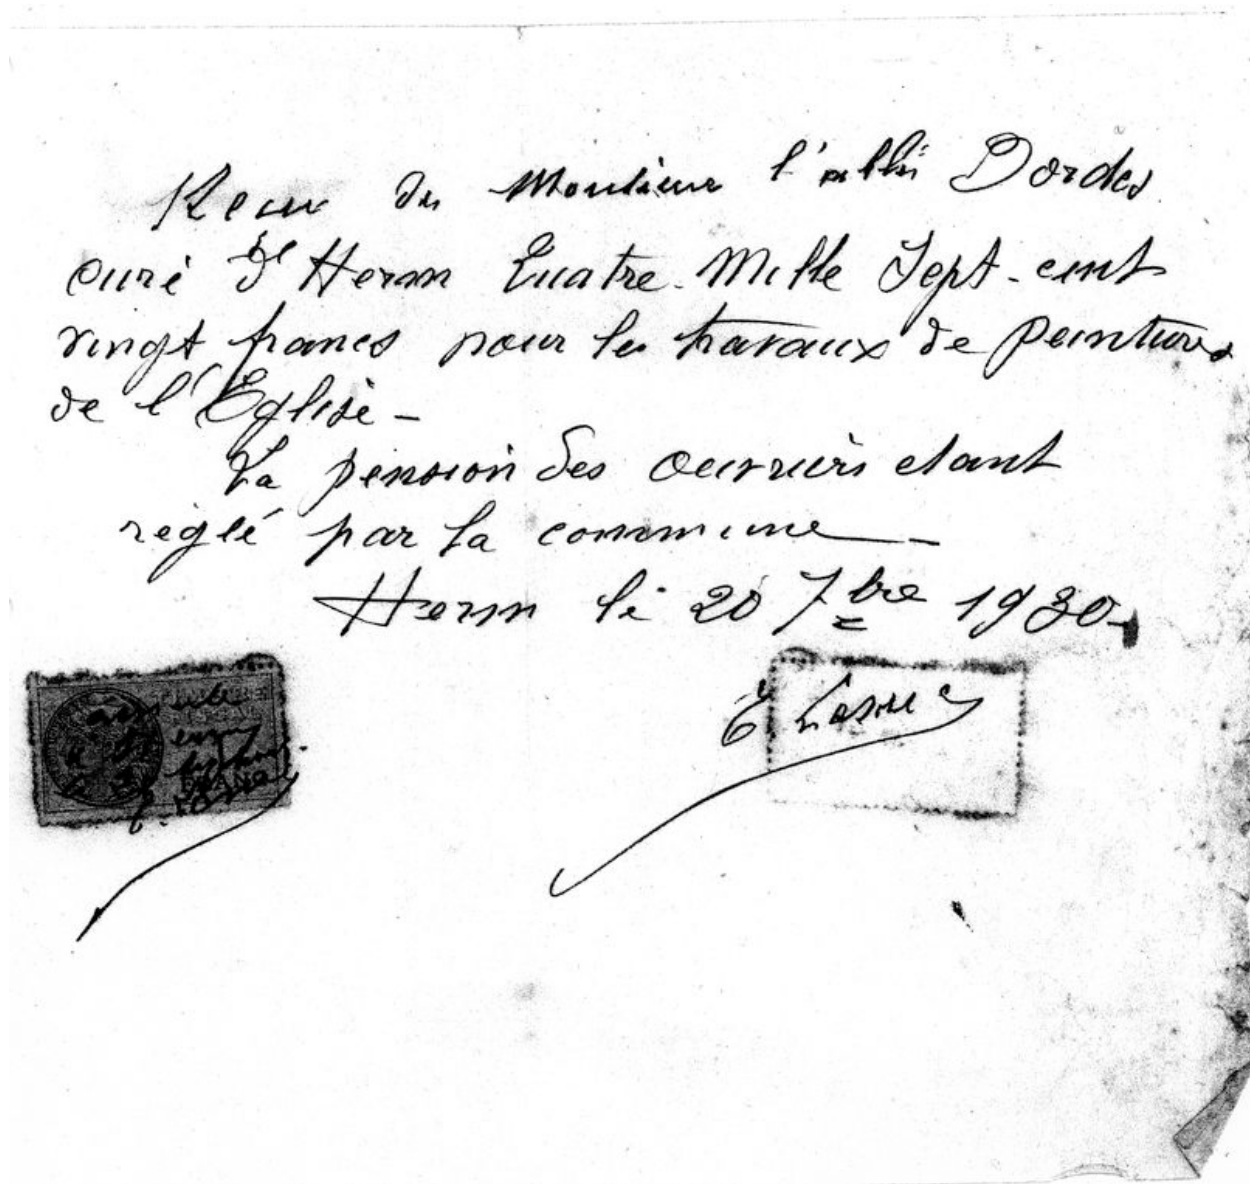 Recu de Monsieur l'abbé Dordes
curé de Herm Quatre Mille Sept-cent
vingt francs pour les travaux de peintures
de l'Eglise -
La pension des ouvriers etant
réglé par la commune -
Herm le 20 7bre 1930